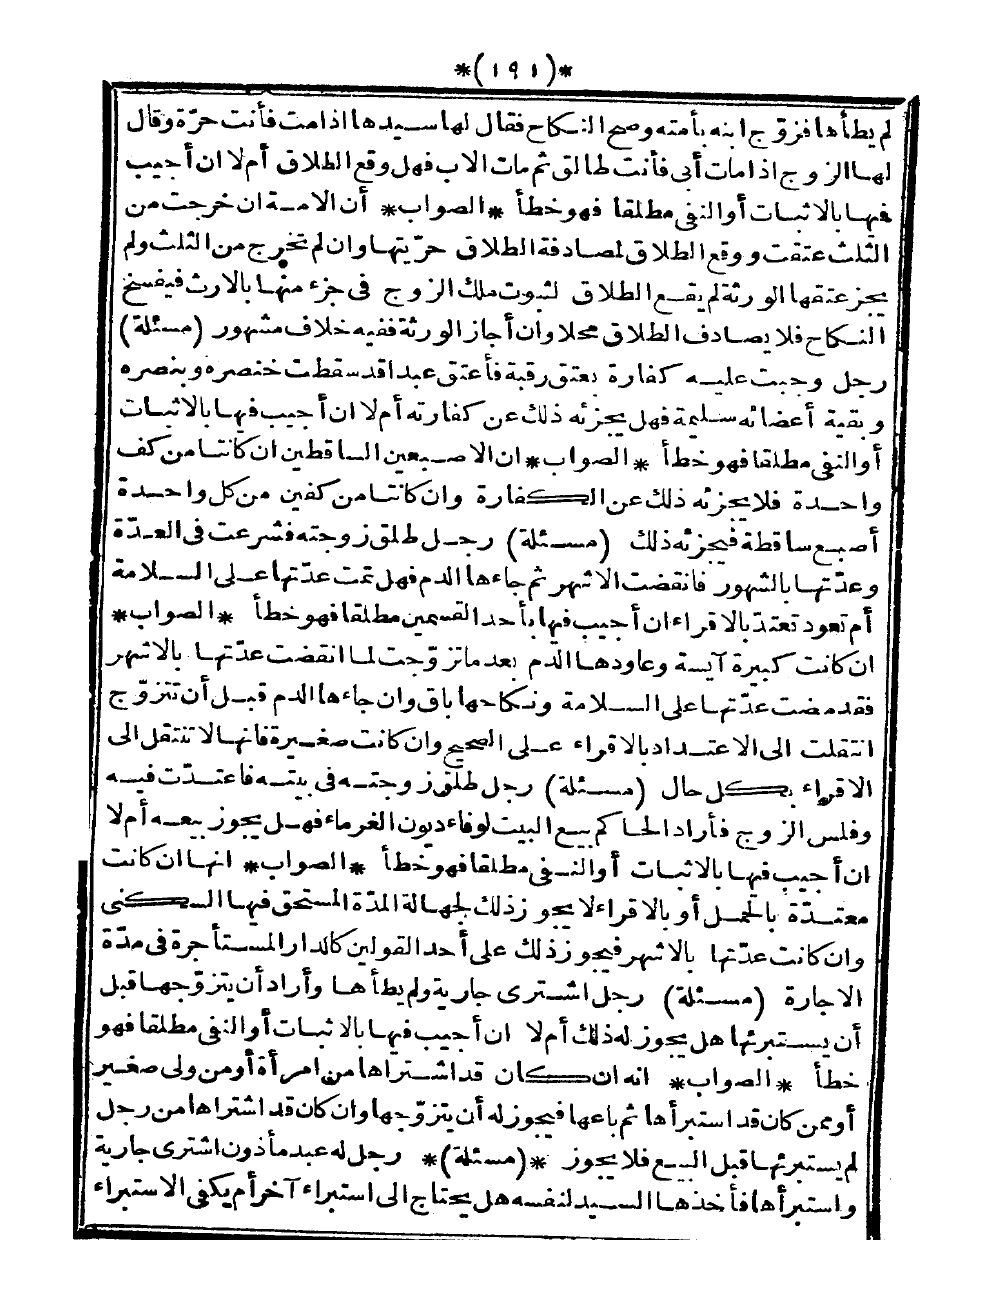 *(١٩١)*
لم يطأها فزوّج ابنه بأمته وصح النكاح فقال لها سيدها اذا مت فأنت حرّة وقال
لها الزوج اذا مات أبى فأنت طالق ثم مات الاب فهل وقع الطلاق أم لا ان أجيب
فيها بالاثبات أو النفى مطلقا فهو خطأ *الصواب* أن الامة ان خرجت من
الثلث عتقت ووقع الطلاق لمصادفة الطلاق حرّيتها وان لم تخرج من الثلث ولم
يجز عتقها الورثة لم يقع الطلاق لثبوت ملك الزوج فى جزء منها بالارث فيفسخ
النكاح فلا يصادف الطلاق محلا وان أجاز الورثة ففيه خلاف مشهور (مسئلة)
رجل وجبت عليه كفارة بعتق رقبة فأعتق عبدا قد سقطت خنصره وبنصره
وبقية أعضائه سليمة فهل يجزئه ذلك عن كفارته أم لا ان أجيب فيها بالاثبات
أو النفى مطلقا فهو خطأ *الصواب* ان الاصبعين الساقطين ان كانتا من كف
واحدة فلا يجزئه ذلك عن الكفارة وان كانتا من كفين من كل واحدة
أصبع ساقطة فيجزئه ذلك (مسئلة) رجل طلق زوجته فشرعت فى العدّة
وعدّتها بالشهور فانقضت الاشهر ثم جاءها الدم فهل تمت عدّتها على السلامة
أم تعود تعتدّ بالاقراء ان أجيب فيها بأحد القسمين مطلقا فهو خطأ *الصواب*
ان كانت كبيرة آيسة وعاودها الدم بعد ما تزوّجت لما انقضت عدّتها بالاشهر
فقد مضت عدّتها على السلامة ونكاحها باق وان جاءها الدم قبل أن تتزوّج
انتقلت الى الاعتداد بالاقراء على الصحيح وان كانت صغيرة فانها لا تنتقل الى
الاقراء بكل حال (مسئلة) رجل طلق زوجته فى بيته فاعتدّت فيه
وفلس الزوج فأراد الحاكم بيع البيت لوفاء ديون الغرماء فهل يجوز بيعه أم لا
ان أجيب فيها بالاثبات أو النفى مطلقا فهو خطأ *الصواب* انها ان كانت
معتدّة بالحمل أو بالاقراء لا يجوز ذلك لجهالة المدّة المستحق فيها السكنى
وان كانت عدّتها بالاشهر فيجوز ذلك على أحد القولين كالدار المستأجرة فى مدّة
الاجارة (مسئلة) رجل اشترى جارية ولم يطأها وأراد أن يتزوّجها قبل
أن يستبرئها هل يجوز له ذلك أم لا ان أجيب فيها بالاثبات أو النفى مطلقا فهو
خطأ *الصواب* انه ان كان قد اشتراها من امرأة أو من ولى صغير
أو ممن كان قد استبرأها ثم باعها فيجوز له أن يتزوّجها وان كان قد اشتراها من رجل
لم يستبرئها قبل البيع فلا يجوز *(مسئلة)* رجل له عبد مأذون اشترى جارية
واستبرأها فأخذها السيد لنفسه هل يحتاج الى استبراء آخر أم يكفى الاستبراء